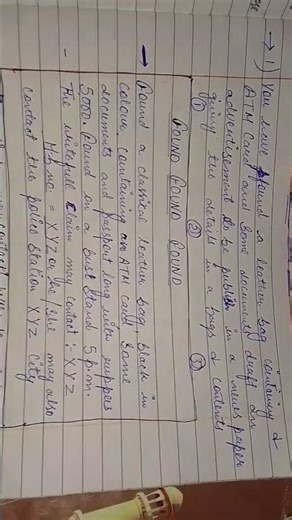 → 1) You have found a leather bag containing d
ATM Card and some documents draft an
advertisement to be publish in a news paper
giving the details in a bags & contents
① ② ③
FOUND FOUND FOUND
→ Found a classical leather bag Black in
colour containing an ATM card. Some
documents and passport long with ruppes
5000 Found on a Bus Stand 5 p.m.
The claim may contact : XYZ
M.b.no. = XYZ or the/she may also
contact the police station XYZ City